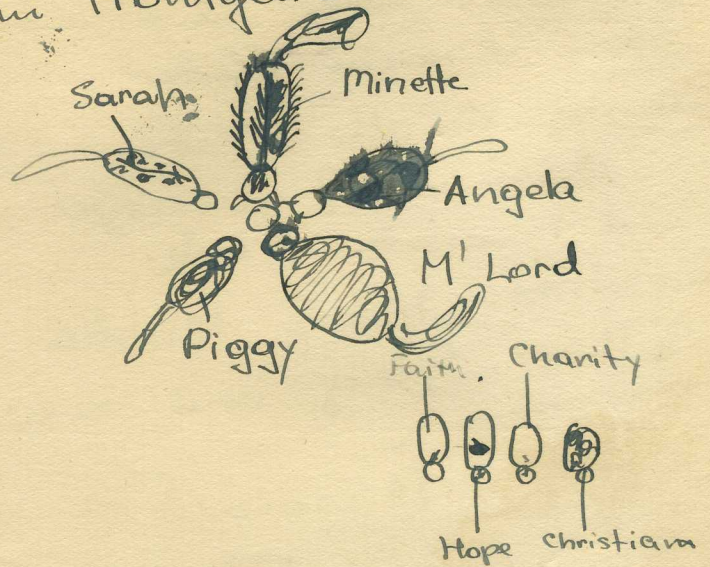 Minette
Sarah
Angela
M' Lord
Piggy
Faith
Charity
Hope
Christiana